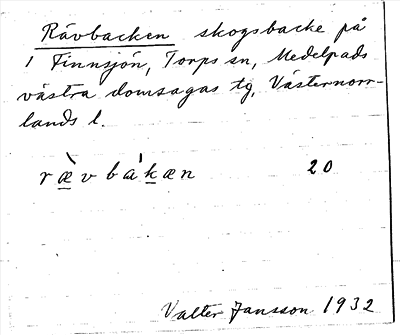 Rävbacken skogsbacke på
1 Finnsjön, Torps sn, Medelpads
västra domsagas tg, Västernorr-
lands l.
rævbákæn 20
Valter Jansson 1932